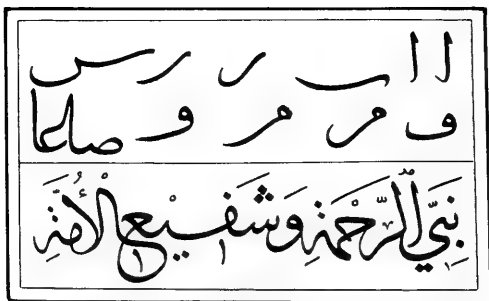 ا ا ٮ ر ر س
ف مر مر و صلحا
نَبِيِّ الرَّحْمَةِ وَشَفِيْعِ الْأُمَّةِ